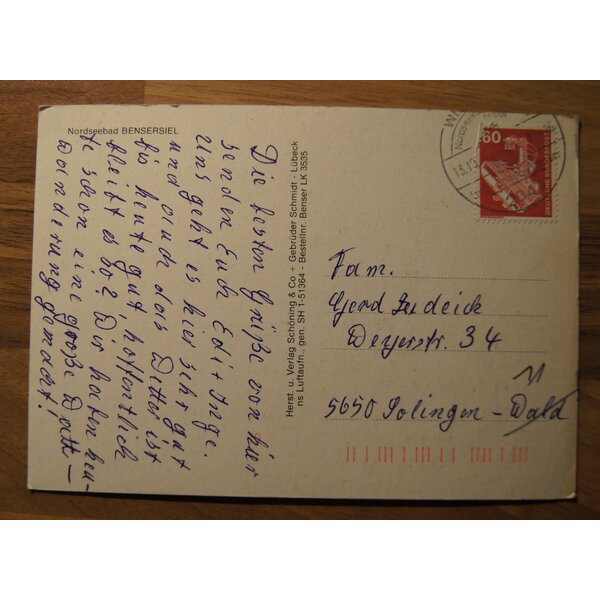 Nordseebad BENSERSIEL
Die besten Grüße von hier
senden Euch Edi + Inge.
Uns geht es hier sehr gut
und auch das Wetter ist
bis heute gut, hoffentlich
bleibt es so? Wir haben heu-
te schon eine große Watt-
wanderung gemacht!
Herst. u. Verlag Schöning & Co + Gebrüder Schmidt - Lübeck
ns Luftaufn., gen. SH 1-51364 - Bestellnr. Benser LK 3535
60
DEUTSCHE BUNDESPOST
Fam.
Gerd
Weyerstr. 34
11
5650 Solingen - Wald